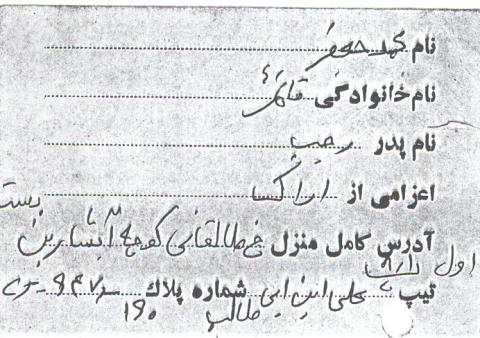 نام محمد جعفر
نام خانوادگی قائمی
نام پدر رجب
اعزامی از اراک
آدرس کامل منزل خ طالقانی کوچه آبشار بن بست
اول
تیپ علی ابن ابی طالب شماره پلاک
۱۹۰